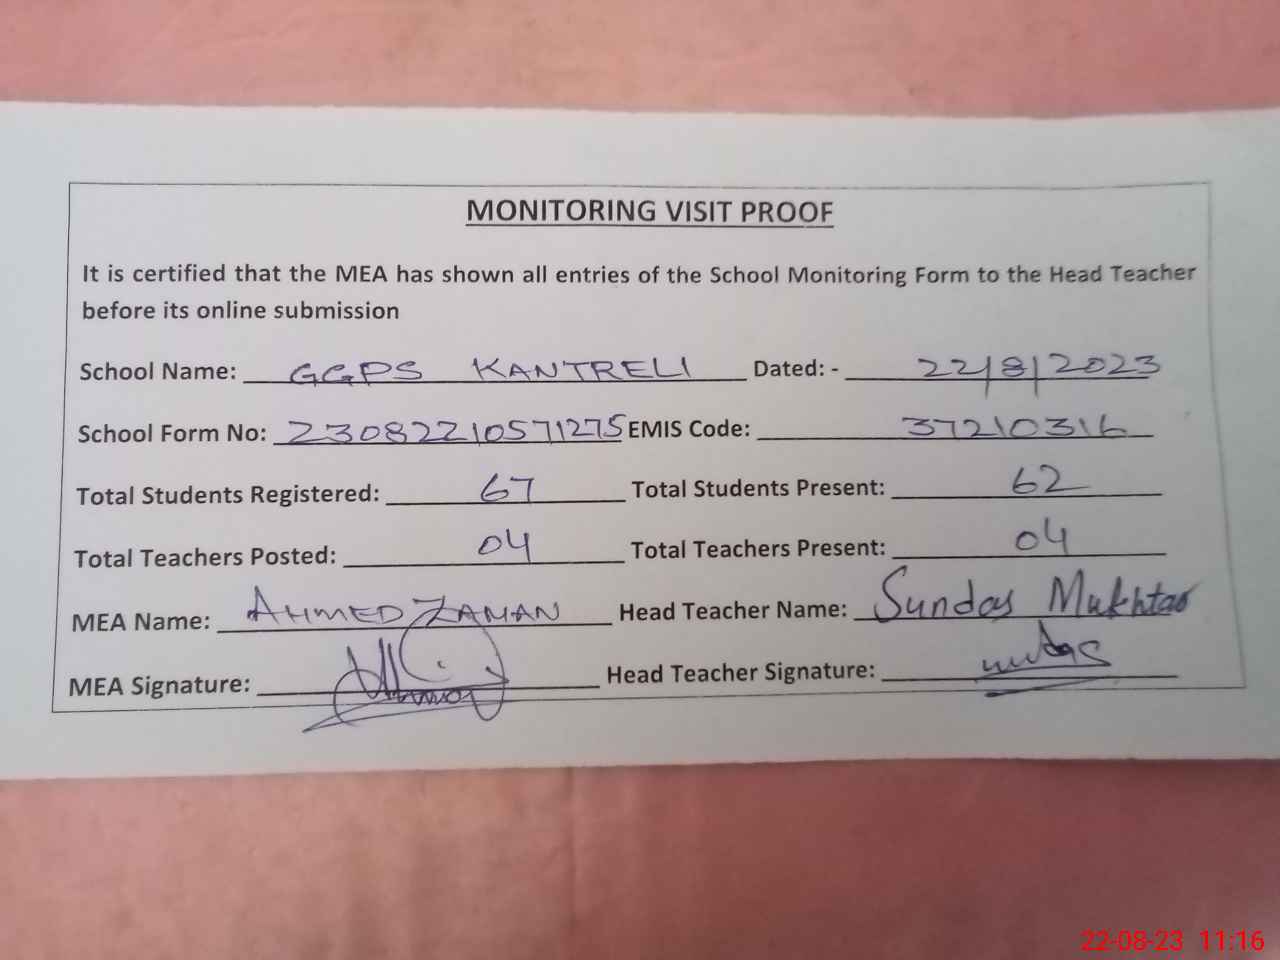 MONITORING VISIT PROOF
It is certified that the MEA has shown all entries of the School Monitoring Form to the Head Teacher
before its online submission
School Name: GGPS KANTRELI Dated: - 22/8/2023
School Form No: 23082210571275 EMIS Code: 37210316
Total Students Registered: 67 Total Students Present: 62
Total Teachers Posted: 04 Total Teachers Present: 04
MEA Name: AHMED ZAMAN Head Teacher Name: Sundas Mukhtar
MEA Signature: Head Teacher Signature:
22-08-23 11:16